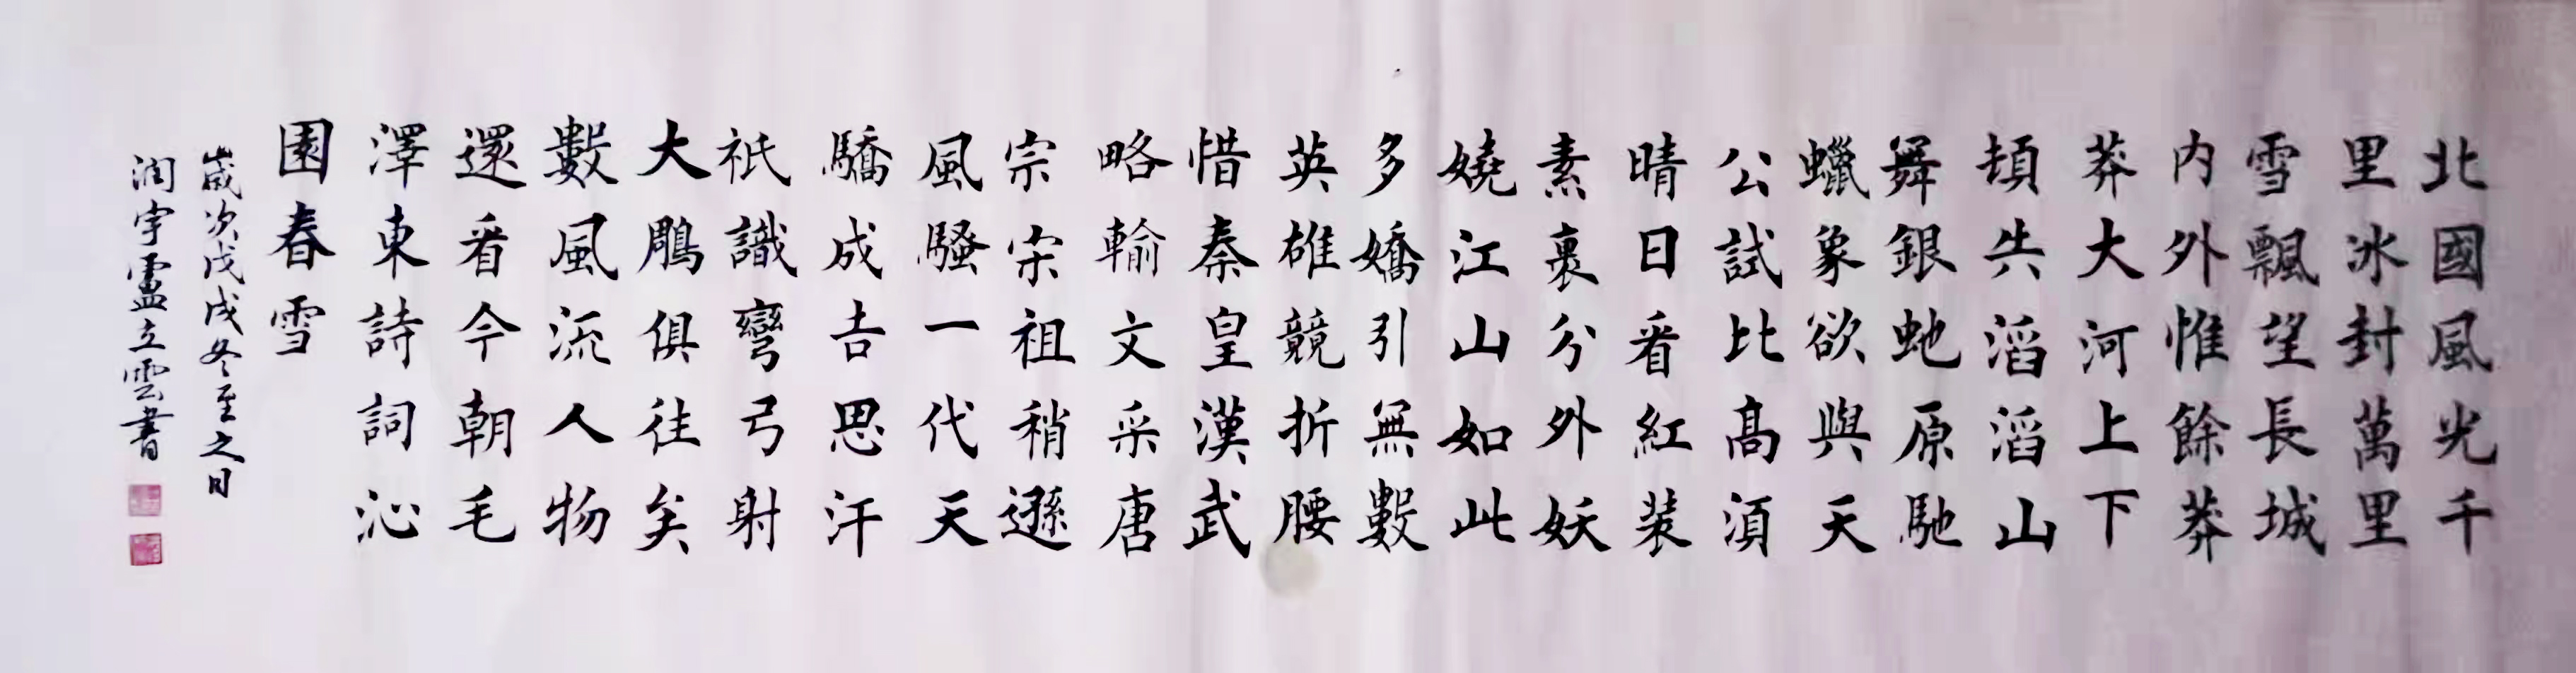 北國風光千
里冰封萬里
雪飄望長城
內外惟餘莽
莽大河上下
頓失滔滔山
舞銀虵原馳
蠟象欲與天
公試比髙須
晴日看紅装
素裹分外妖
嬈江山如此
多嬌引無數
英雄競折腰
惜秦皇漢武
略輸文采唐
宗宋祖稍遜
風騷一代天
驕成吉思汗
祇識彎弓射
大鵰俱往矣
數風流人物
還看今朝毛
澤東詩詞沁
園春雪
歲次戊戌冬至之日
潤宇靈立雲書